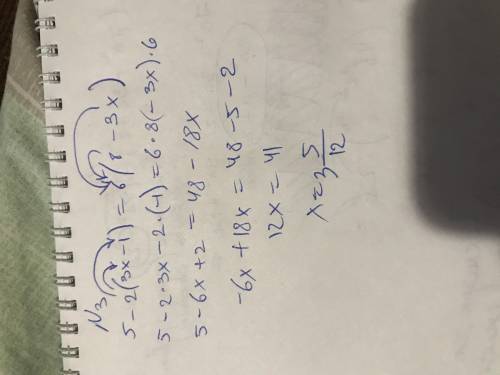 N3
5 - 2(3x - 1) = 6(8 - 3x)
5 - 2 · 3x - 2 · (-1) = 6 · 8(-3x) · 6
5 - 6x + 2 = 48 - 18x
-6x + 18x = 48 - 5 - 2
12x = 41
x = 3 5/12